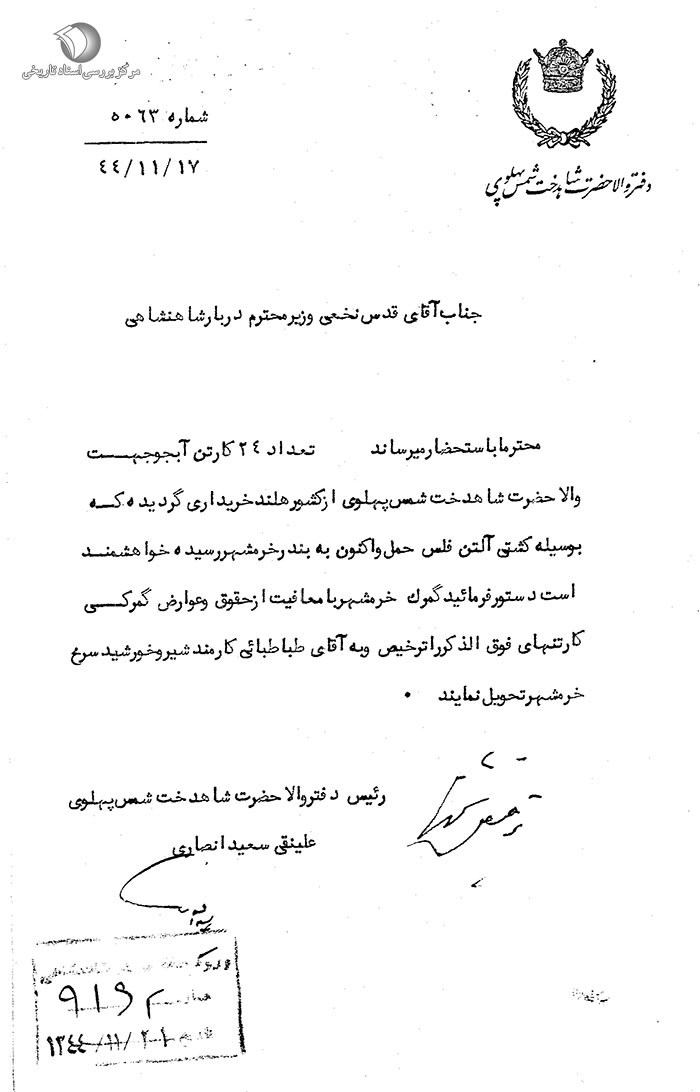 مرکز بررسی اسناد تاریخی
شماره ۵۰۶۳
۴۴/۱۱/۱۷
دفتر والاحضرت شاهدخت شمس پهلوی
جناب آقای قدس نخعی وزیر محترم دربار شاهنشاهی
محترما باستحضار میرساند تعداد ۲۴ کارتن آبجو جهت
والاحضرت شاهدخت شمس پهلوی از کشور هلند خریداری گردیده که
بوسیله کشتی آلتن فلس حمل واکنون به بندر خرمشهر رسیده خواهشمند
است دستور فرمائید گمرك خرمشهر با معافیت از حقوق وعوارض گمرکی
کارتنهای فوق الذکر را ترخیص وبه آقای طباطبائی کارمند شیر و خورشید سرخ
خرمشهر تحویل نمایند .
رئیس دفتر والاحضرت شاهدخت شمس پهلوی
علینقی سعید انصاری
۹۱۹
۱۳۴۴/۱۱/۲۰۱